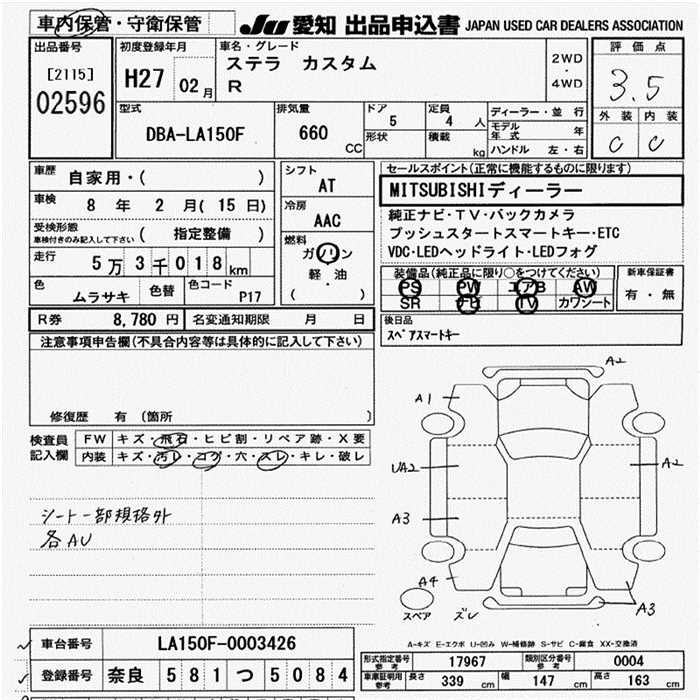 車内保管・守衛保管 JU 愛知 出品申込書 JAPAN USED CAR DEALERS ASSOCIATION
出品番号 初度登録年月 車名・グレード 評価点
[2115] H27 02月 ステラ カスタム 2WD・4WD 3.5
02596 R
外装 内装
C C
型式 排気量 ドア 定員 ディーラー・並行
DBA-LA150F 660 CC 5 4 人 モデル年式 年
形状 積載 kg ハンドル 左・右
車歴 自家用・( ) シフト AT セールスポイント(正常に機能するものに限ります)
車検 8 年 2 月( 15 日) 冷房 AAC MITSUBISHIディーラー
受検形態 車検付きのみ記入して下さい ( 指定整備 ) 燃料 ガソリン 軽・油 ( )
純正ナビ・TV・バックカメラ
プッシュスタートスマートキー・ETC
VDC・LEDヘッドライト・LEDフォグ
走行 5万 3千 018 km
装備品(純正品に限り○をつけてください) 新車保証書
PS PW エアB AW 有・無
SR ナビ TV カワシート
色 ムラサキ 色替 色コード P17
R券 8,780 円 名変通知期限 月 日
後日品
スペアスマートキー
注意事項申告欄(不具合内容等は具体的に記入して下さい)
修復歴 有 (箇所 )
検査員記入欄 FW キズ・飛石・ヒビ割・リペア跡・X要
内装 キズ・汚レ・コゲ・穴・スレ・キレ・破レ
シート一部規格外
各AU
A2
A1
UA2 A2
A3
A4 A3
スペア ズレ
A-キズ E-エクボ U-凹み W-補修跡 S-サビ C-腐食 XX-交換済
車台番号 LA150F-0003426
登録番号 奈良 581 つ 5084
形式指定番号 参考 17967 類別区分番号 参考 0004
車庫証明用 参考 長さ 339 cm 幅 147 cm 高さ 163 cm